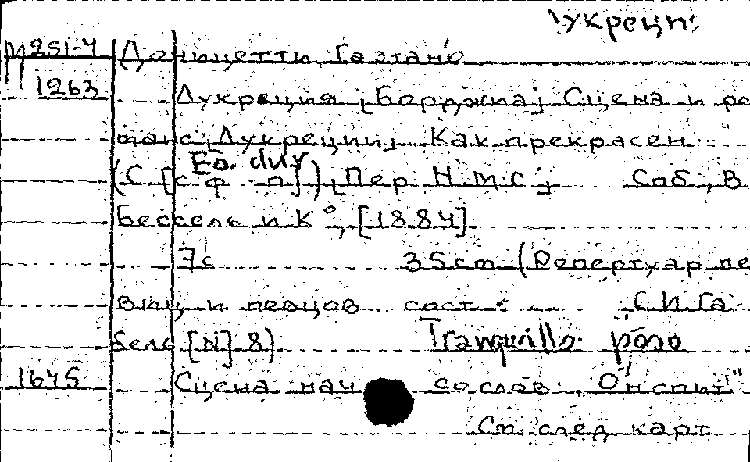 Лукреци
М 251-4 Доницетти Гаэтано
1263 Лукреция [Борджиа] Сцена и ро
манс [Лукреции] Как прекрасен
Ea. dur
(С [с ф-п]), Пер Н.М.С; Соб, В
Бессель и К°, [1884].
7с 35 cm (Репертуар пе
виц и певцов сост: С И Га
бель [N] 8)
Tranquillo poso
1645 Сцена нач со слов: "Он спит"
См след карт